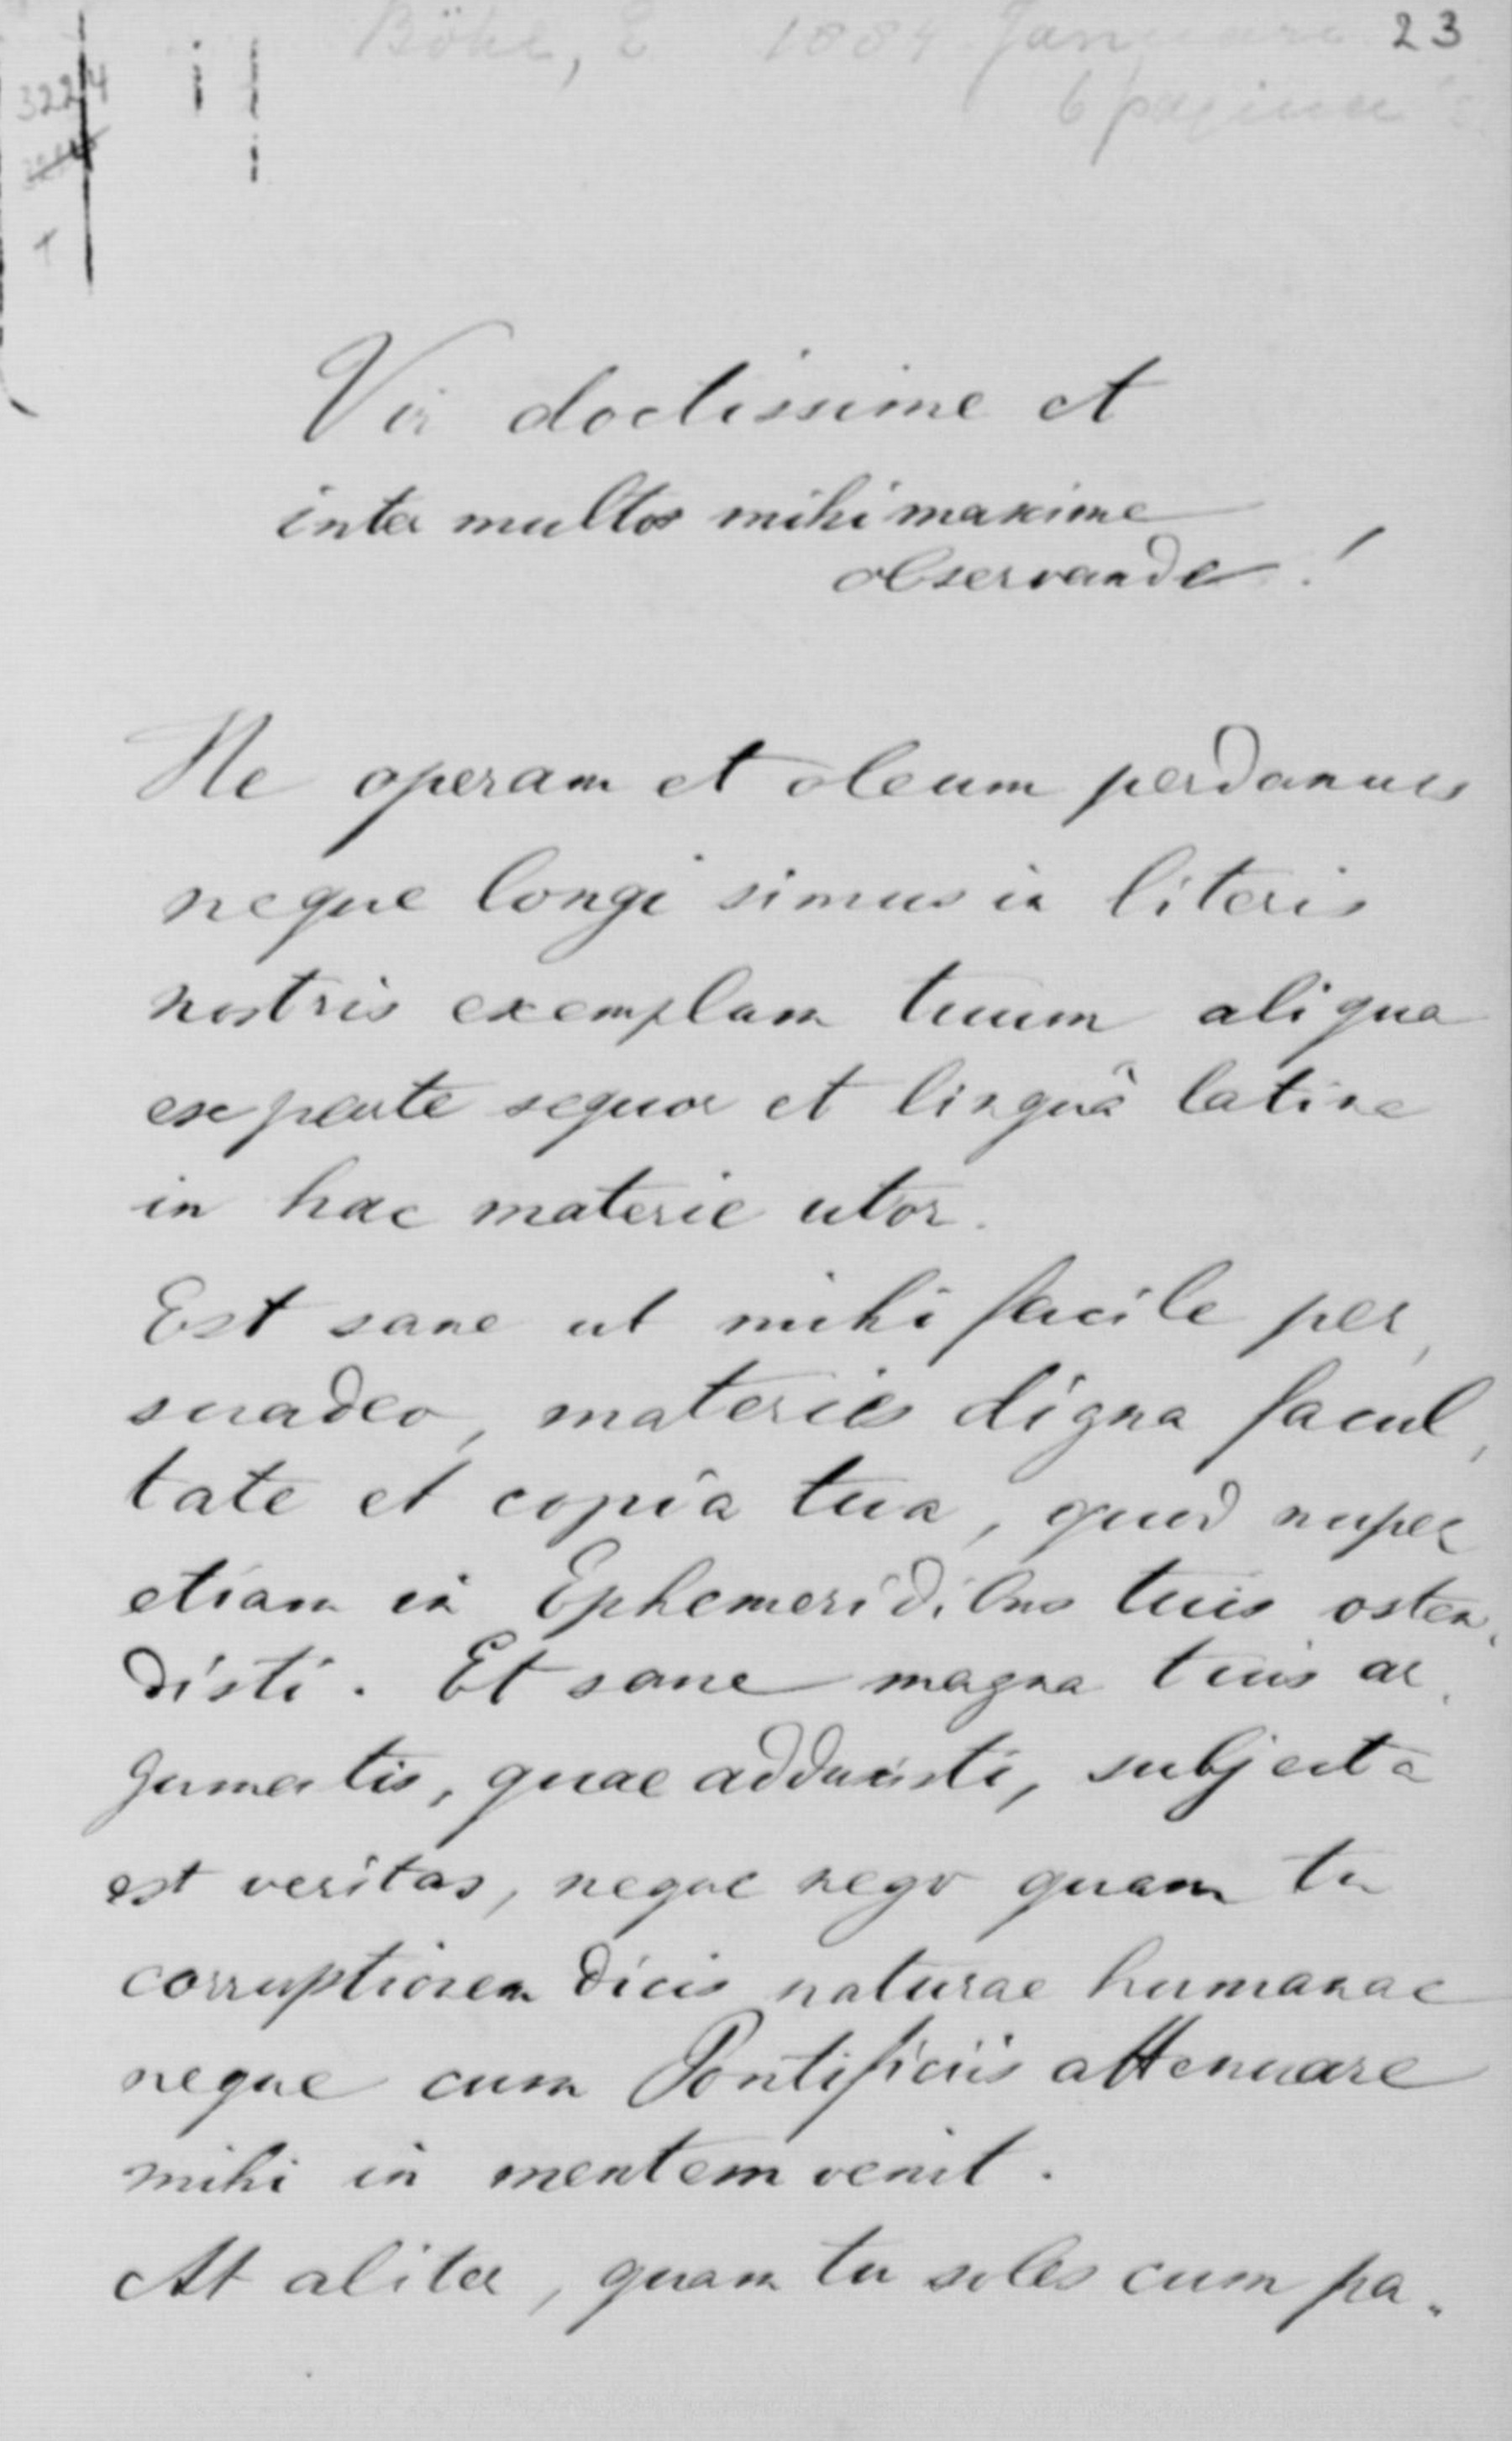 Böhl, E 1884 Januari 23
6 pagina's
3224
Vir doctissime et
inter multos mihi maxime
observande!
Ne operam et oleum perdamus
neque longi simus in literis
nostris exemplum tuum aliqua
ex parte sequor et linguâ latine
in hac materie utor.
Est sane ut mihi facile per,
suadeo, materies digna facul,
tate et copiâ tua, quod nuper
etiam in Ephemeridibus tuis osten,
disti. Et sane magna tuis ar,
gumentis, quae adduxisti, subjecta
est veritas, neque nego quam tu
corruptionem dicis naturae humanae
neque cum Pontificiis attenuare
mihi in mentem venit.
At aliter, quam tu soles cum pa„